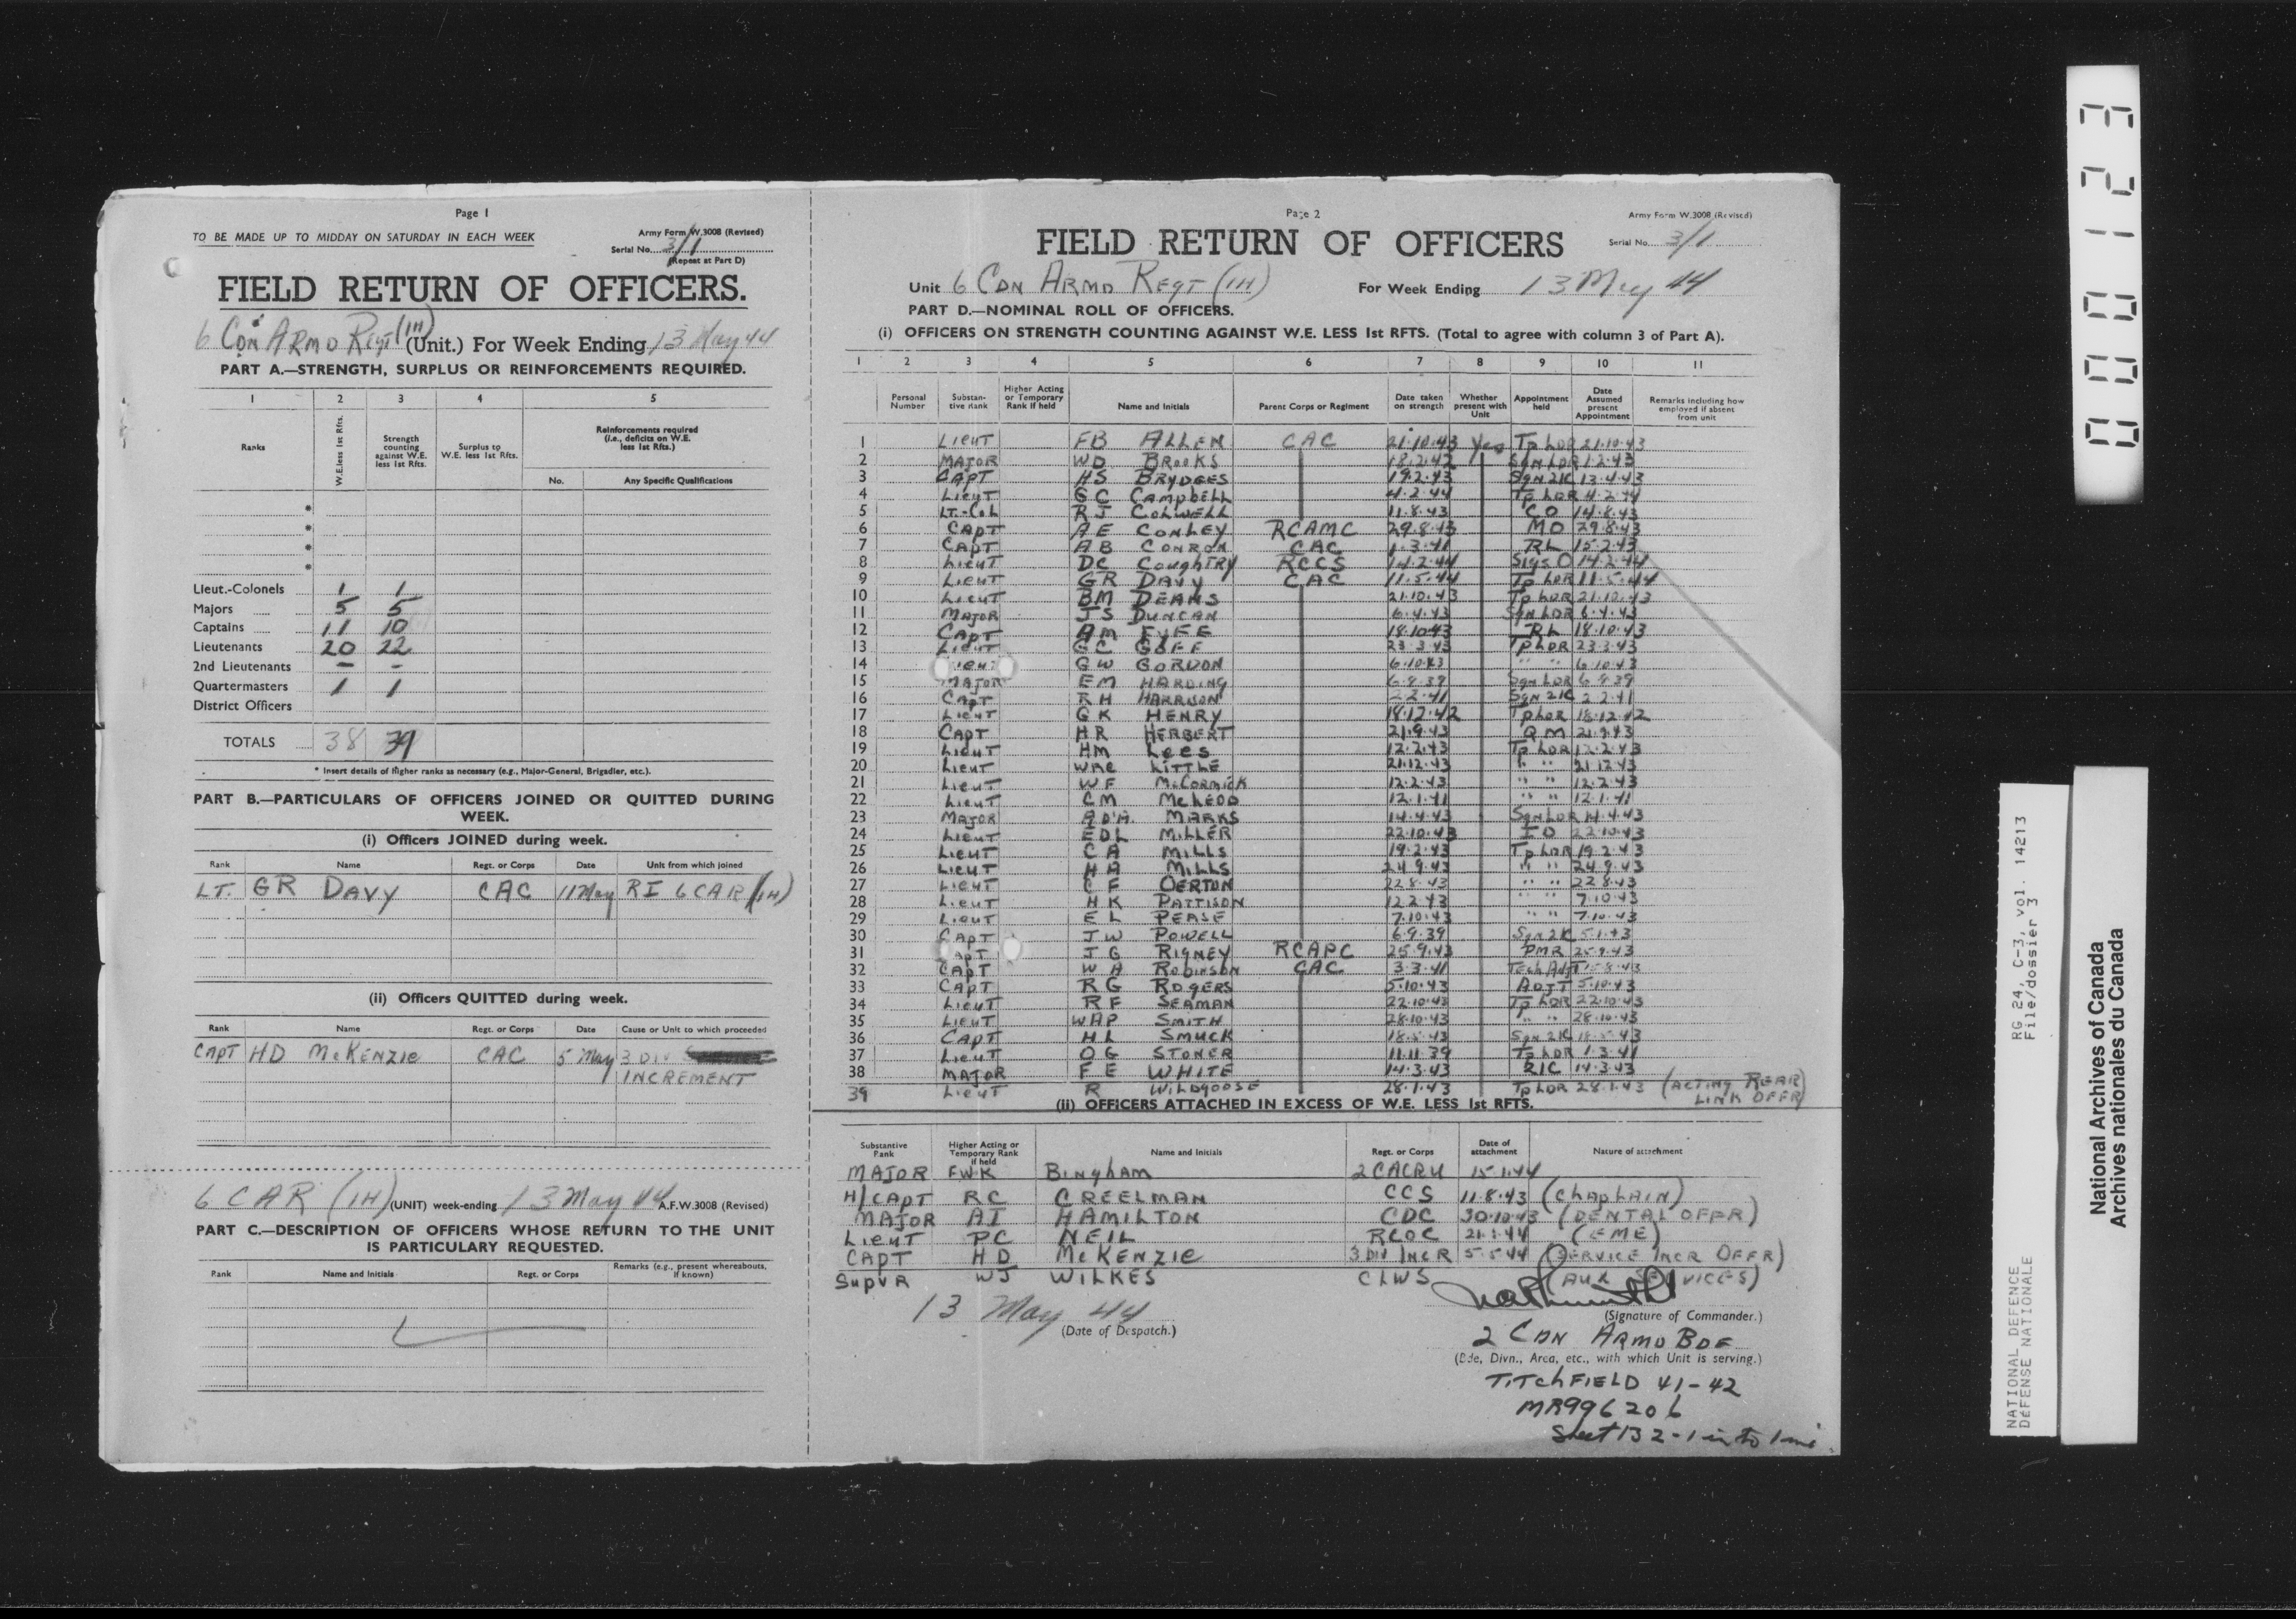 Page 1
TO BE MADE UP TO MIDDAY ON SATURDAY IN EACH WEEK
Army Form W.3008 (Revised)
Serial No. 3/1
(Repeat at Part D)
FIELD RETURN OF OFFICERS.
6 CDN ARMD REGT (1H) (Unit.) For Week Ending 13 May 44
PART A.—STRENGTH, SURPLUS OR REINFORCEMENTS REQUIRED.
1 2 3 4 5
Ranks W.E. less 1st Rfts. Strength counting against W.E. less 1st Rfts. Surplus to W.E. less 1st Rfts. Reinforcements required (i.e., deficits on W.E. less 1st Rfts.)
No. Any Specific Qualifications
*
*
*
*
Lieut.-Colonels 1 1
Majors 5 5
Captains 11 10
Lieutenants 20 22
2nd Lieutenants — —
Quartermasters 1 1
District Officers
TOTALS 38 39
* Insert details of higher ranks as necessary (e.g., Major-General, Brigadier, etc.).
PART B.—PARTICULARS OF OFFICERS JOINED OR QUITTED DURING
WEEK.
(i) Officers JOINED during week.
Rank Name Regt. or Corps Date Unit from which joined
LT. GR DAVY CAC 11 May RI 6 CAR (1H)
(ii) Officers QUITTED during week.
Rank Name Regt. or Corps Date Cause or Unit to which proceeded
CAPT HD McKENZIE CAC 5 May 3 DIV
INCREMENT
6 CAR (1H) (UNIT) week-ending 13 May 44 A.F.W.3008 (Revised)
PART C.—DESCRIPTION OF OFFICERS WHOSE RETURN TO THE UNIT
IS PARTICULARY REQUESTED.
Rank Name and Initials Regt. or Corps Remarks (e.g., present whereabouts, if known)
Page 2
Army Form W.3008 (Revised)
FIELD RETURN OF OFFICERS
Serial No. 3/1
Unit 6 CDN ARMD REGT (1H) For Week Ending 13 May 44
PART D.—NOMINAL ROLL OF OFFICERS.
(i) OFFICERS ON STRENGTH COUNTING AGAINST W.E. LESS 1st RFTS. (Total to agree with column 3 of Part A).
1 2 3 4 5 6 7 8 9 10 11
Personal Number Substantive Rank Higher Acting or Temporary Rank if held Name and Initials Parent Corps or Regiment Date taken on strength Whether present with Unit Appointment held Date Assumed present Appointment Remarks including how employed if absent from unit
1 LIEUT FB ALLEN CAC 21.10.43 Yes Tp LDR 21.10.43
2 MAJOR WD BROOKS 18.2.42 Sqn LDR 1.2.43
3 CAPT HS BRYDGES 19.2.43 Sqn 2IC 13.4.43
4 LIEUT GC CAMPBELL 4.2.44 Tp LDR 4.2.44
5 LT.-COL RJ COLWELL 11.8.43 CO 14.8.43
6 CAPT AE CONLEY RCAMC 29.8.43 MO 29.8.43
7 CAPT AB CONRON CAC 1.3.41 RL 15.2.43
8 LIEUT DC COUGHTRY RCCS 14.2.44 Sigs O 14.2.44
9 LIEUT GR DAVY CAC 11.5.44 Tp LDR 11.5.44
10 LIEUT BM DEANS 21.10.43 Tp LDR 21.10.43
11 MAJOR JS DUNCAN 6.4.43 Sqn LDR 6.4.43
12 CAPT AM FYFE 18.10.43 RL 18.10.43
13 LIEUT GC GOFF 23.3.43 Tp LDR 23.3.43
14 LIEUT GW GORDON 6.10.43 " " 6.10.43
15 MAJOR EM HARDING 6.9.39 Sqn LDR 6.9.39
16 CAPT RH HARRISON 2.2.41 Sqn 2IC 2.2.41
17 LIEUT GK HENRY 18.12.42 Tp LDR 18.12.42
18 CAPT HR HERBERT 21.9.43 QM 21.9.43
19 LIEUT HM LEES 12.2.43 Tp LDR 12.2.43
20 LIEUT WRC LITTLE 21.12.43 " " 21.12.43
21 LIEUT WF McCORMICK 12.2.43 " " 12.2.43
22 LIEUT CM McLEOD 12.1.41 " " 12.1.41
23 MAJOR AD'A. MARKS 14.4.43 Sqn LDR 14.4.43
24 LIEUT EDL MILLER 22.10.43 IO 22.10.43
25 LIEUT CA MILLS 19.2.43 Tp LDR 19.2.43
26 LIEUT HA MILLS 24.9.43 " " 24.9.43
27 LIEUT CF OERTON 22.8.43 " " 22.8.43
28 LIEUT HK PATTISON 12.2.43 " " 7.10.43
29 LIEUT EL PEASE 7.10.43 " " 7.10.43
30 CAPT JW POWELL 6.9.39 Sqn 2IC 5.1.43
31 CAPT JG RIGNEY RCAPC 25.9.43 PMR 25.9.43
32 CAPT WA ROBINSON CAC 3.3.41 Tech Adjt
33 CAPT RG ROGERS 5.10.43 ADJT 5.10.43
34 LIEUT RF SEAMAN 22.10.43 Tp LDR 22.10.43
35 LIEUT WAP SMITH 28.10.43 " " 28.10.43
36 CAPT HL SMUCK 18.5.43 Sqn 2IC 18.5.43
37 LIEUT OG STONER 11.11.39 Tp LDR 1.3.41
38 MAJOR FE WHITE 14.3.43 2IC 14.3.43
39 LIEUT R WILDGOOSE 28.1.43 Tp LDR 28.1.43 (ACTING REAR LINK OFFR)
(ii) OFFICERS ATTACHED IN EXCESS OF W.E. LESS 1st RFTS.
Substantive Rank Higher Acting or Temporary Rank if held Name and Initials Regt. or Corps Date of attachment Nature of attachment
MAJOR FWK BINGHAM 2 CACRU 15.1.44
H/CAPT RC CREELMAN CCS 11.8.43 (CHAPLAIN)
MAJOR AI HAMILTON CDC 30.10.43 (DENTAL OFFR)
LIEUT PC NEIL RCOC 21.1.44 (EME)
CAPT HD McKENZIE 3 DIV INCR 5.5.44 (SERVICE INCR OFFR)
SUPVR WJ WILKES CLWS (AUX SERVICES)
13 May 44
(Date of Despatch.)
(Signature of Commander.)
2 CDN ARMD BDE
(Bde, Divn., Area, etc., with which Unit is serving.)
TITCHFIELD 41-42
MR 996206
Sheet 132 - 1 in to 1 mi
000123
RG 24, C-3, vol. 14213
File/dossier 3
NATIONAL DEFENCE
DÉFENSE NATIONALE
National Archives of Canada
Archives nationales du Canada